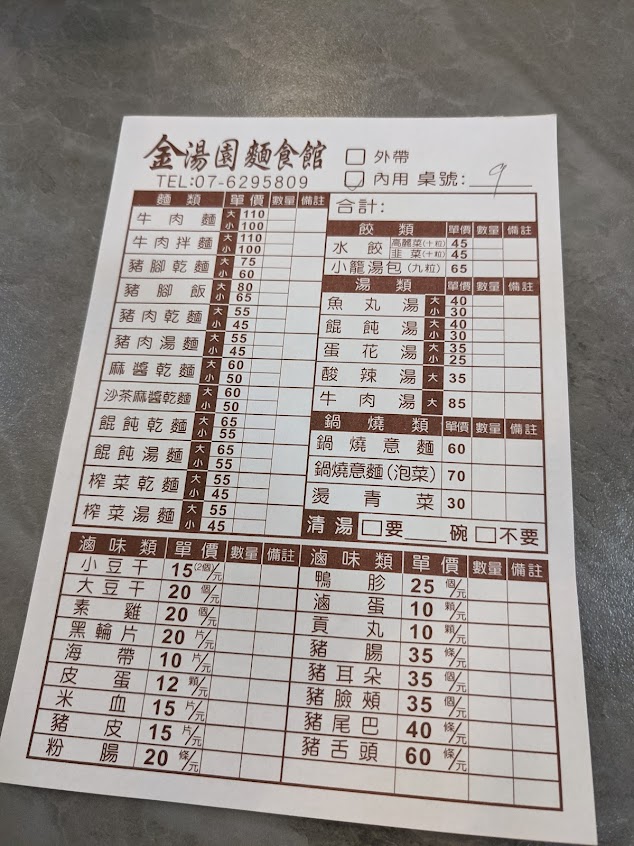 金湯園麵食館
TEL:07-6295809
□外帶
□內用 桌號: 9
麵類 單價 數量 備註
牛肉麵 大 110
小 100
牛肉拌麵 大 110
小 100
豬腳乾麵 大 75
小 60
豬腳飯 大 80
小 65
豬肉乾麵 大 55
小 45
豬肉湯麵 大 55
小 45
麻醬乾麵 大 60
小 50
沙茶麻醬乾麵 大 60
小 50
餛飩乾麵 大 65
小 55
餛飩湯麵 大 65
小 55
榨菜乾麵 大 55
小 45
榨菜湯麵 大 55
小 45
合計:
餃類 單價 數量 備註
水餃 高麗菜(十粒) 45
韭菜(十粒) 45
小籠湯包(九粒) 65
湯類 單價 數量 備註
魚丸湯 大 40
小 30
餛飩湯 大 40
小 30
蛋花湯 大 35
小 25
酸辣湯 大 35
牛肉湯 大 85
鍋燒類 單價 數量 備註
鍋燒意麵 60
鍋燒意麵(泡菜) 70
燙青菜 30
清湯 □要 碗 □不要
滷味類 單價 數量 備註
小豆干 15(2個)/元
大豆干 20個/元
素雞 20個/元
黑輪片 20片/元
海帶 10片/元
皮蛋 12顆/元
米血 15片/元
豬皮 15片/元
粉腸 20條/元
滷味類 單價 數量 備註
鴨胗 25個/元
滷蛋 10顆/元
貢丸 10顆/元
豬腸 35條/元
豬耳朵 35個/元
豬臉頰 35個/元
豬尾巴 40條/元
豬舌頭 60條/元